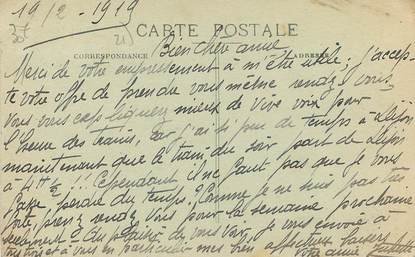 19/2 - 1919
CARTE POSTALE
CORRESPONDANCE
ADRESSE
Bien chère amie
Merci de votre empressement à m'être utile; j'accep-
te votre offre de prendre vous même rendez vous,
vous vous expliquerez mieux de vive voix pour
l'heure des trains, car j'ai si peu de temps à Dijon
maintenant que le train du soir part de Dijon
à 4h !!! Cependant il ne faut pas que je vous
fasse perdre du temps! Comme je ne suis pas très
forte, prenez rendez vous pour la semaine prochaine
seulement - Au plaisir de vous voir, je vous envoie à
toutes et à vous en particulier mes bien affectueux baisers
Votre amie